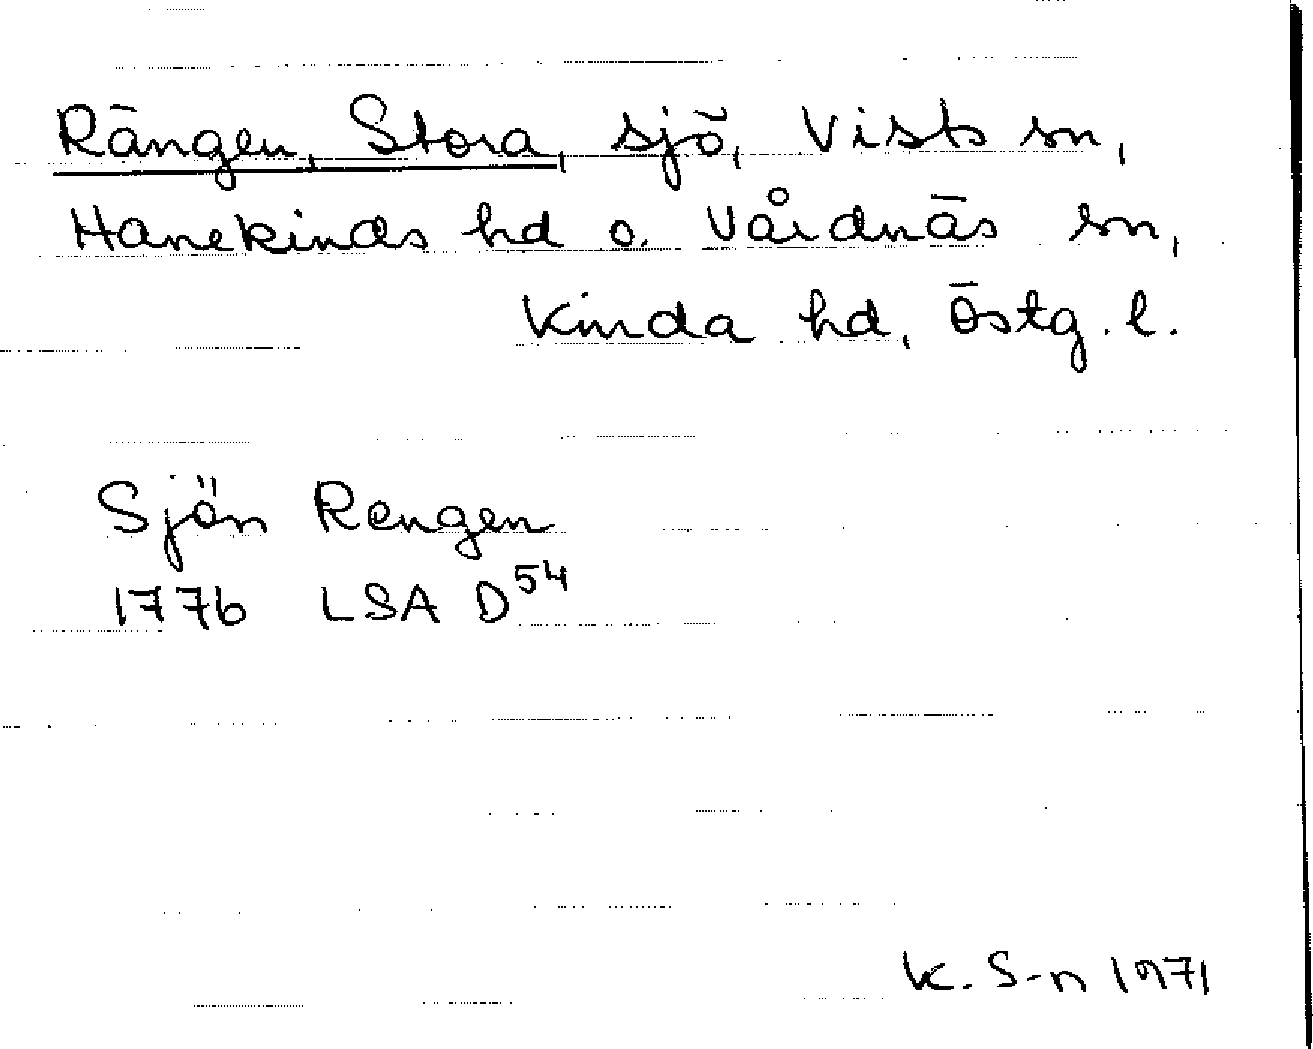 Rängen, Stora, sjö, Vists sn,
Hanekinds hd o. Vårdnäs sn,
Kinda hd, Östg. l.
Sjön Rengen
1776 LSA D⁵⁴
K. S-n 1971